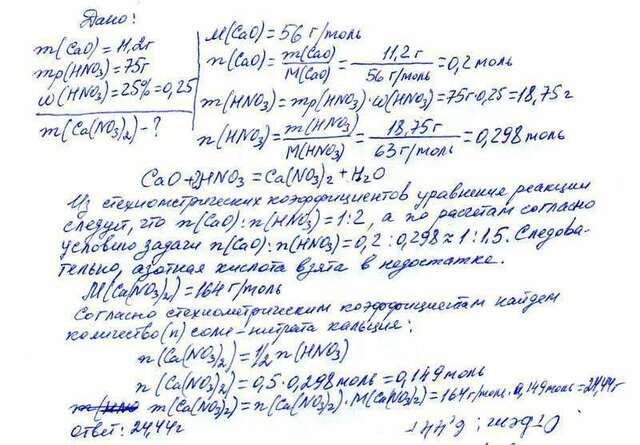 Дано:
m(CaO) = 11,2г
mр(HNO3) = 75г
ω(HNO3) = 25% = 0,25
m(Ca(NO3)2) - ?
M(CaO) = 56 г/моль
n(CaO) = m(CaO)/M(CaO) = 11,2 г/56 г/моль = 0,2 моль
m(HNO3) = mр(HNO3)·ω(HNO3) = 75г·0,25 = 18,75 г
n(HNO3) = m(HNO3)/M(HNO3) = 18,75г/63 г/моль = 0,298 моль
CaO + 2HNO3 = Ca(NO3)2 + H2O
Из стехиометрических коэффициентов уравнение реакции
следует, что n(CaO) : n(HNO3) = 1:2, а по расчетам согласно
условию задачи n(CaO) : n(HNO3) = 0,2 : 0,298 ≈ 1 : 1,5. Следова-
тельно, азотная кислота взята в недостатке.
M(Ca(NO3)2) = 164 г/моль
Согласно стехиометрическим коэффициентам найдем
количество (n) соли - нитрата кальция:
n(Ca(NO3)2) = 1/2 n(HNO3)
n(Ca(NO3)2) = 0,5 · 0,298 моль = 0,149 моль
m(Ca(NO3)2) = n(Ca(NO3)2) · M(Ca(NO3)2) = 164 г/моль · 0,149 моль = 24,44 г
ответ: 24,44 г
Ответ: